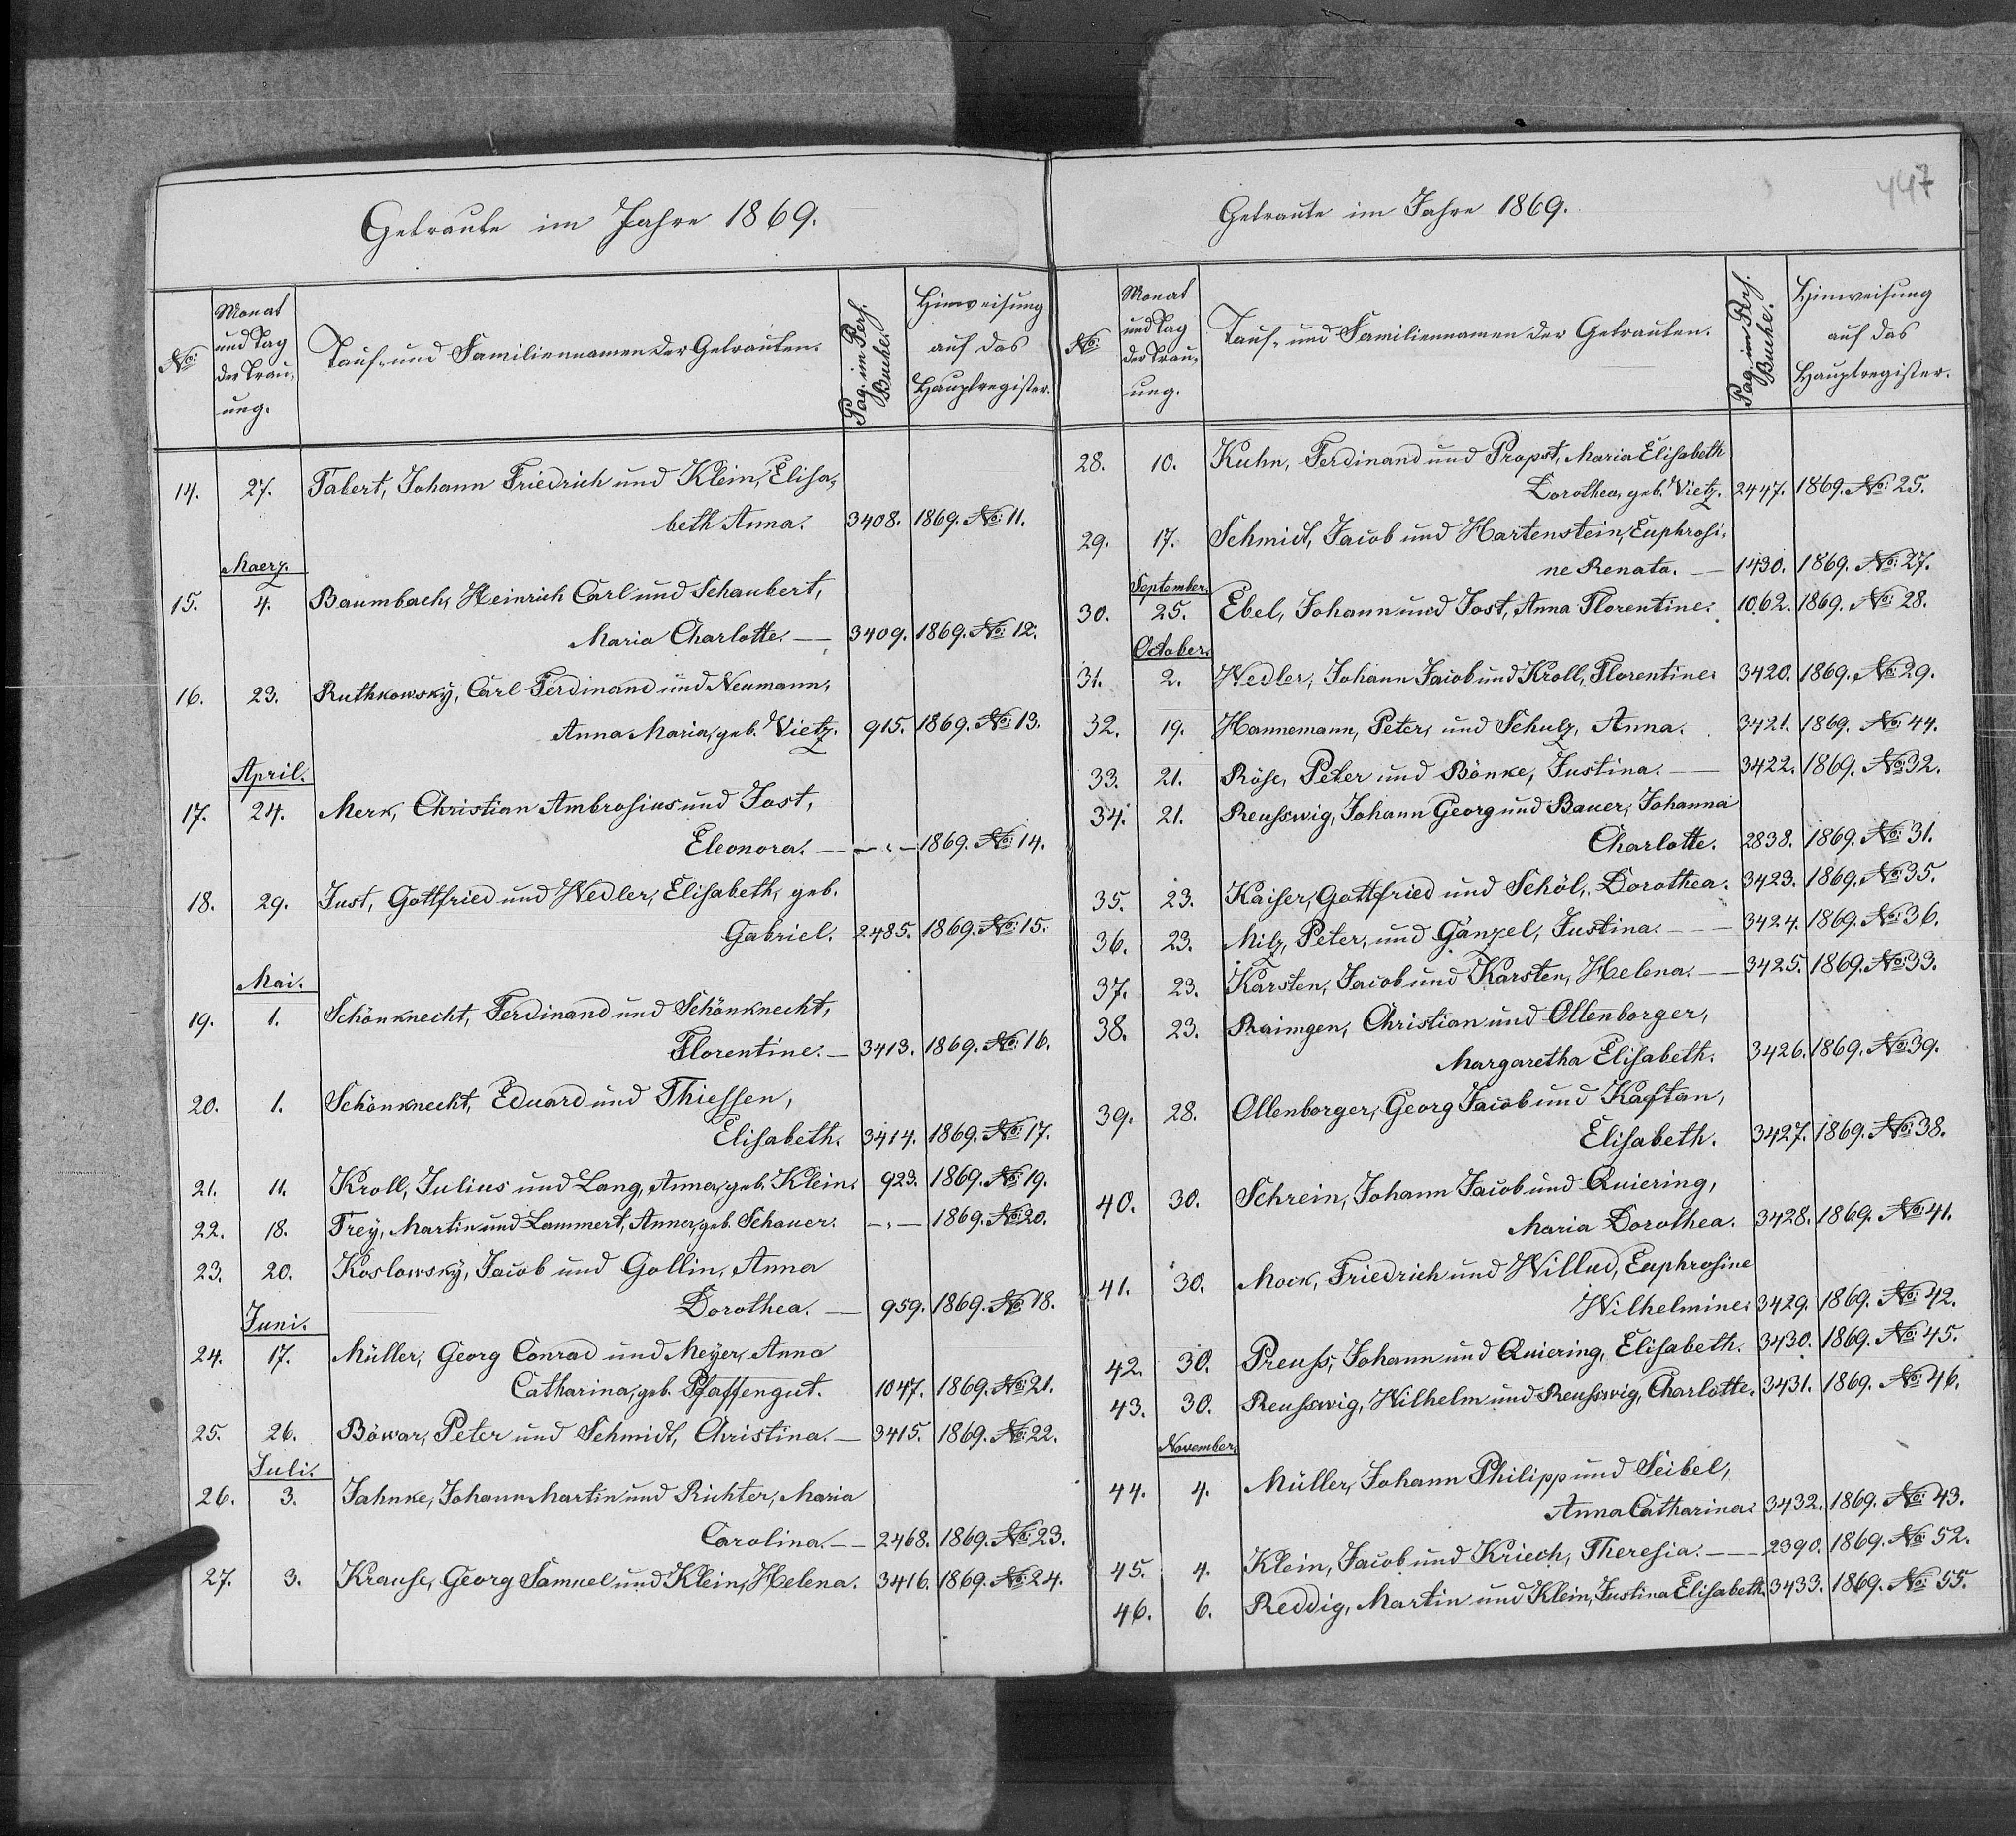 Getraute im Jahre 1869.
No:
Monat
und Tag
der Trau-
ung.
Tauf- und Familiennamen der Getrauten.
Pag. im Pers.
Buche.
Hinweisung
auf das
Hauptregister.
14. 27. Tabert, Johann Friedrich und Klein, Elisa-
beth Anna. 3408. 1869. No: 11.
Maerz.
15. 4. Baumbach, Heinrich Carl und Schaubert,
Maria Charlotte. — 3409. 1869. No: 12.
16. 23. Ruthkowsky, Carl Ferdinand und Neumann,
Anna Maria, geb. Vietz. 915. 1869. No: 13.
April.
17. 24. Merk, Christian Ambrosius und Jost,
Eleonora. — — " — 1869. No: 14.
18. 29. Just, Gottfried und Wedler, Elisabeth, geb.
Gabriel. 2485. 1869. No: 15.
Mai.
19. 1. Schönknecht, Ferdinand und Schönknecht,
Florentine. — 3413. 1869. No: 16.
20. 1. Schönknecht, Eduard und Thiessen,
Elisabeth. 3414. 1869. No: 17.
21. 11. Kroll, Julius und Lang, Anna, geb. Klein. 923. 1869. No: 19.
22. 18. Frey, Martin und Lammert, Anna, geb. Schauer. — " — 1869. No: 20.
23. 20. Koslowsky, Jacob und Gollin, Anna
Dorothea. — 959. 1869. No 18.
Juni.
24. 17. Müller, Georg Conrad und Meyer, Anna
Catharina, geb. Pfaffengut. 1047. 1869. No: 21.
25. 26. Böwar, Peter und Schmidt, Christina. — 3415. 1869. No: 22.
Juli.
26. 3. Jahnke, Johann Martin und Richter, Maria
Carolina. — 2468. 1869. No: 23.
27. 3. Krause, Georg Samuel und Klein, Helena. 3416. 1869. No: 24.
447
Getraute im Jahre 1869.
No:
Monat
und Tag
der Trau-
ung.
Tauf- und Familiennamen der Getrauten.
Pag. im Pers.
Buche.
Hinweisung
auf das
Hauptregister.
28. 10. Kuhn, Ferdinand und Propst, Maria Elisabeth
Dorothea, geb. Vietz. 2447. 1869. No: 25.
29. 17. Schmidt, Jacob und Hartenstein, Euphrosi-
ne Renata. — 1430. 1869. No: 27.
September.
30. 25. Ebel, Johann und Jost, Anna Florentine. 1062. 1869. No: 28.
October.
31. 2. Wedler, Johann Jacob und Kroll, Florentine. 3420. 1869. No: 29.
32. 19. Hannemann, Peter, und Schulz, Anna. 3421. 1869. No: 44.
33. 21. Röse, Peter und Bönke, Justina. — 3422. 1869. No: 32.
34. 21. Reusswig, Johann Georg und Bauer, Johanna
Charlotte. 2838. 1869. No: 31.
35. 23. Kaiser, Gottfried und Schöl, Dorothea. 3423. 1869. No: 35.
36. 23. Milz, Peter, und Gänzel, Justina. — 3424. 1869. No: 36.
37. 23. Karsten, Jacob und Karsten, Helena. — 3425. 1869. No: 33.
38. 23. Raimgen, Christian und Ollenborger,
Margaretha Elisabeth. 3426. 1869. No: 39.
39. 28. Ollenborger, Georg Jacob und Kaftan,
Elisabeth. 3427. 1869. No: 38.
40. 30. Schrein, Johann Jacob und Quiering,
Maria Dorothea. 3428. 1869. No: 41.
41. 30. Mock, Friedrich und Willud, Euphrosine
Wilhelmine. 3429. 1869. No: 42.
42. 30. Preuss, Johann und Quiering, Elisabeth. 3430. 1869. No: 45.
43. 30. Reusswig, Wilhelm und Reusswig, Charlotte. 3431. 1869. No: 46.
November.
44. 4. Müller, Johann Philipp und Seibel,
Anna Catharina. 3432. 1869. No: 43.
45. 4. Klein, Jacob und Kriech, Theresia. — 2390. 1869. No: 52.
46. 6. Reddig, Martin und Klein, Justina Elisabeth. 3433. 1869. No: 55.